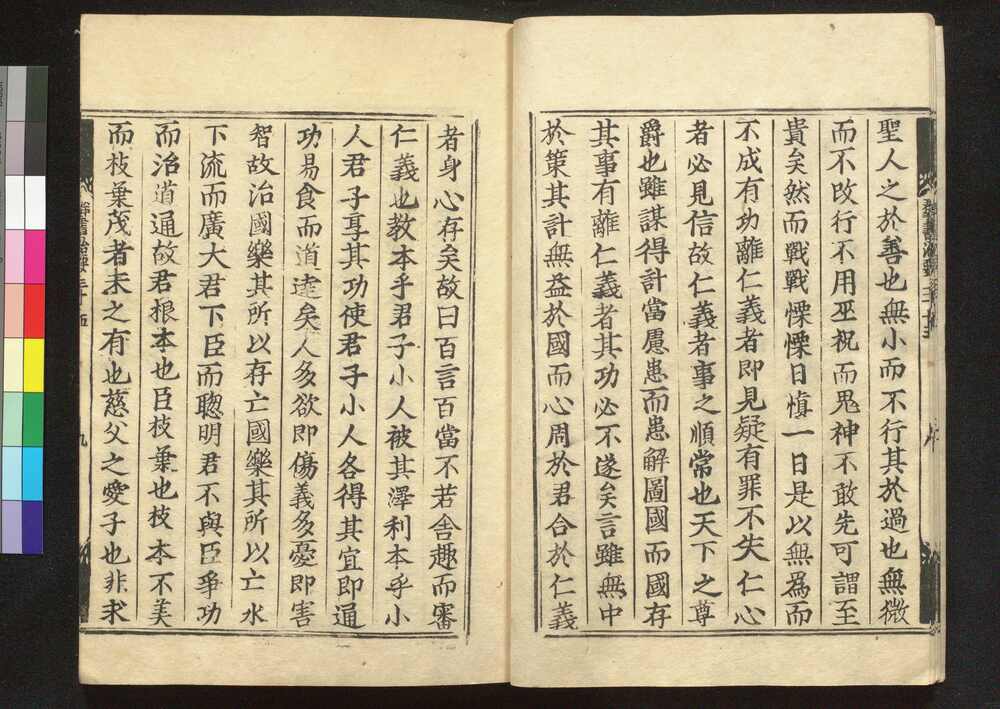 聖人之於善也無小而不行其於過也無微
而不改行不用巫祝而鬼神不敢先可謂至
貴矣然而戰戰慄慄日愼一日是以無爲而
不成有功離仁義者即見疑有罪不失仁心
者必見信故仁義者事之順常也天下之尊
爵也雖謀得計當慮患而患解圖國而國存
其事有離仁義者其功必不遂矣言雖無中
於策其計無益於國而心周於君合於仁義
者身心存矣故曰百言百當不若舍趣而審
仁義也教本乎君子小人被其澤利本乎小
人君子享其功使君子小人各得其宜即通
功易食而道達矣人多欲即傷義多憂即害
智故治國樂其所以存亡國樂其所以亡水
下流而廣大君下臣而聰明君不與臣爭功
而治道通故君根本也臣枝葉也枝本不美
而枝葉茂者未之有也慈父之愛子也非求
群書治要三十五
九